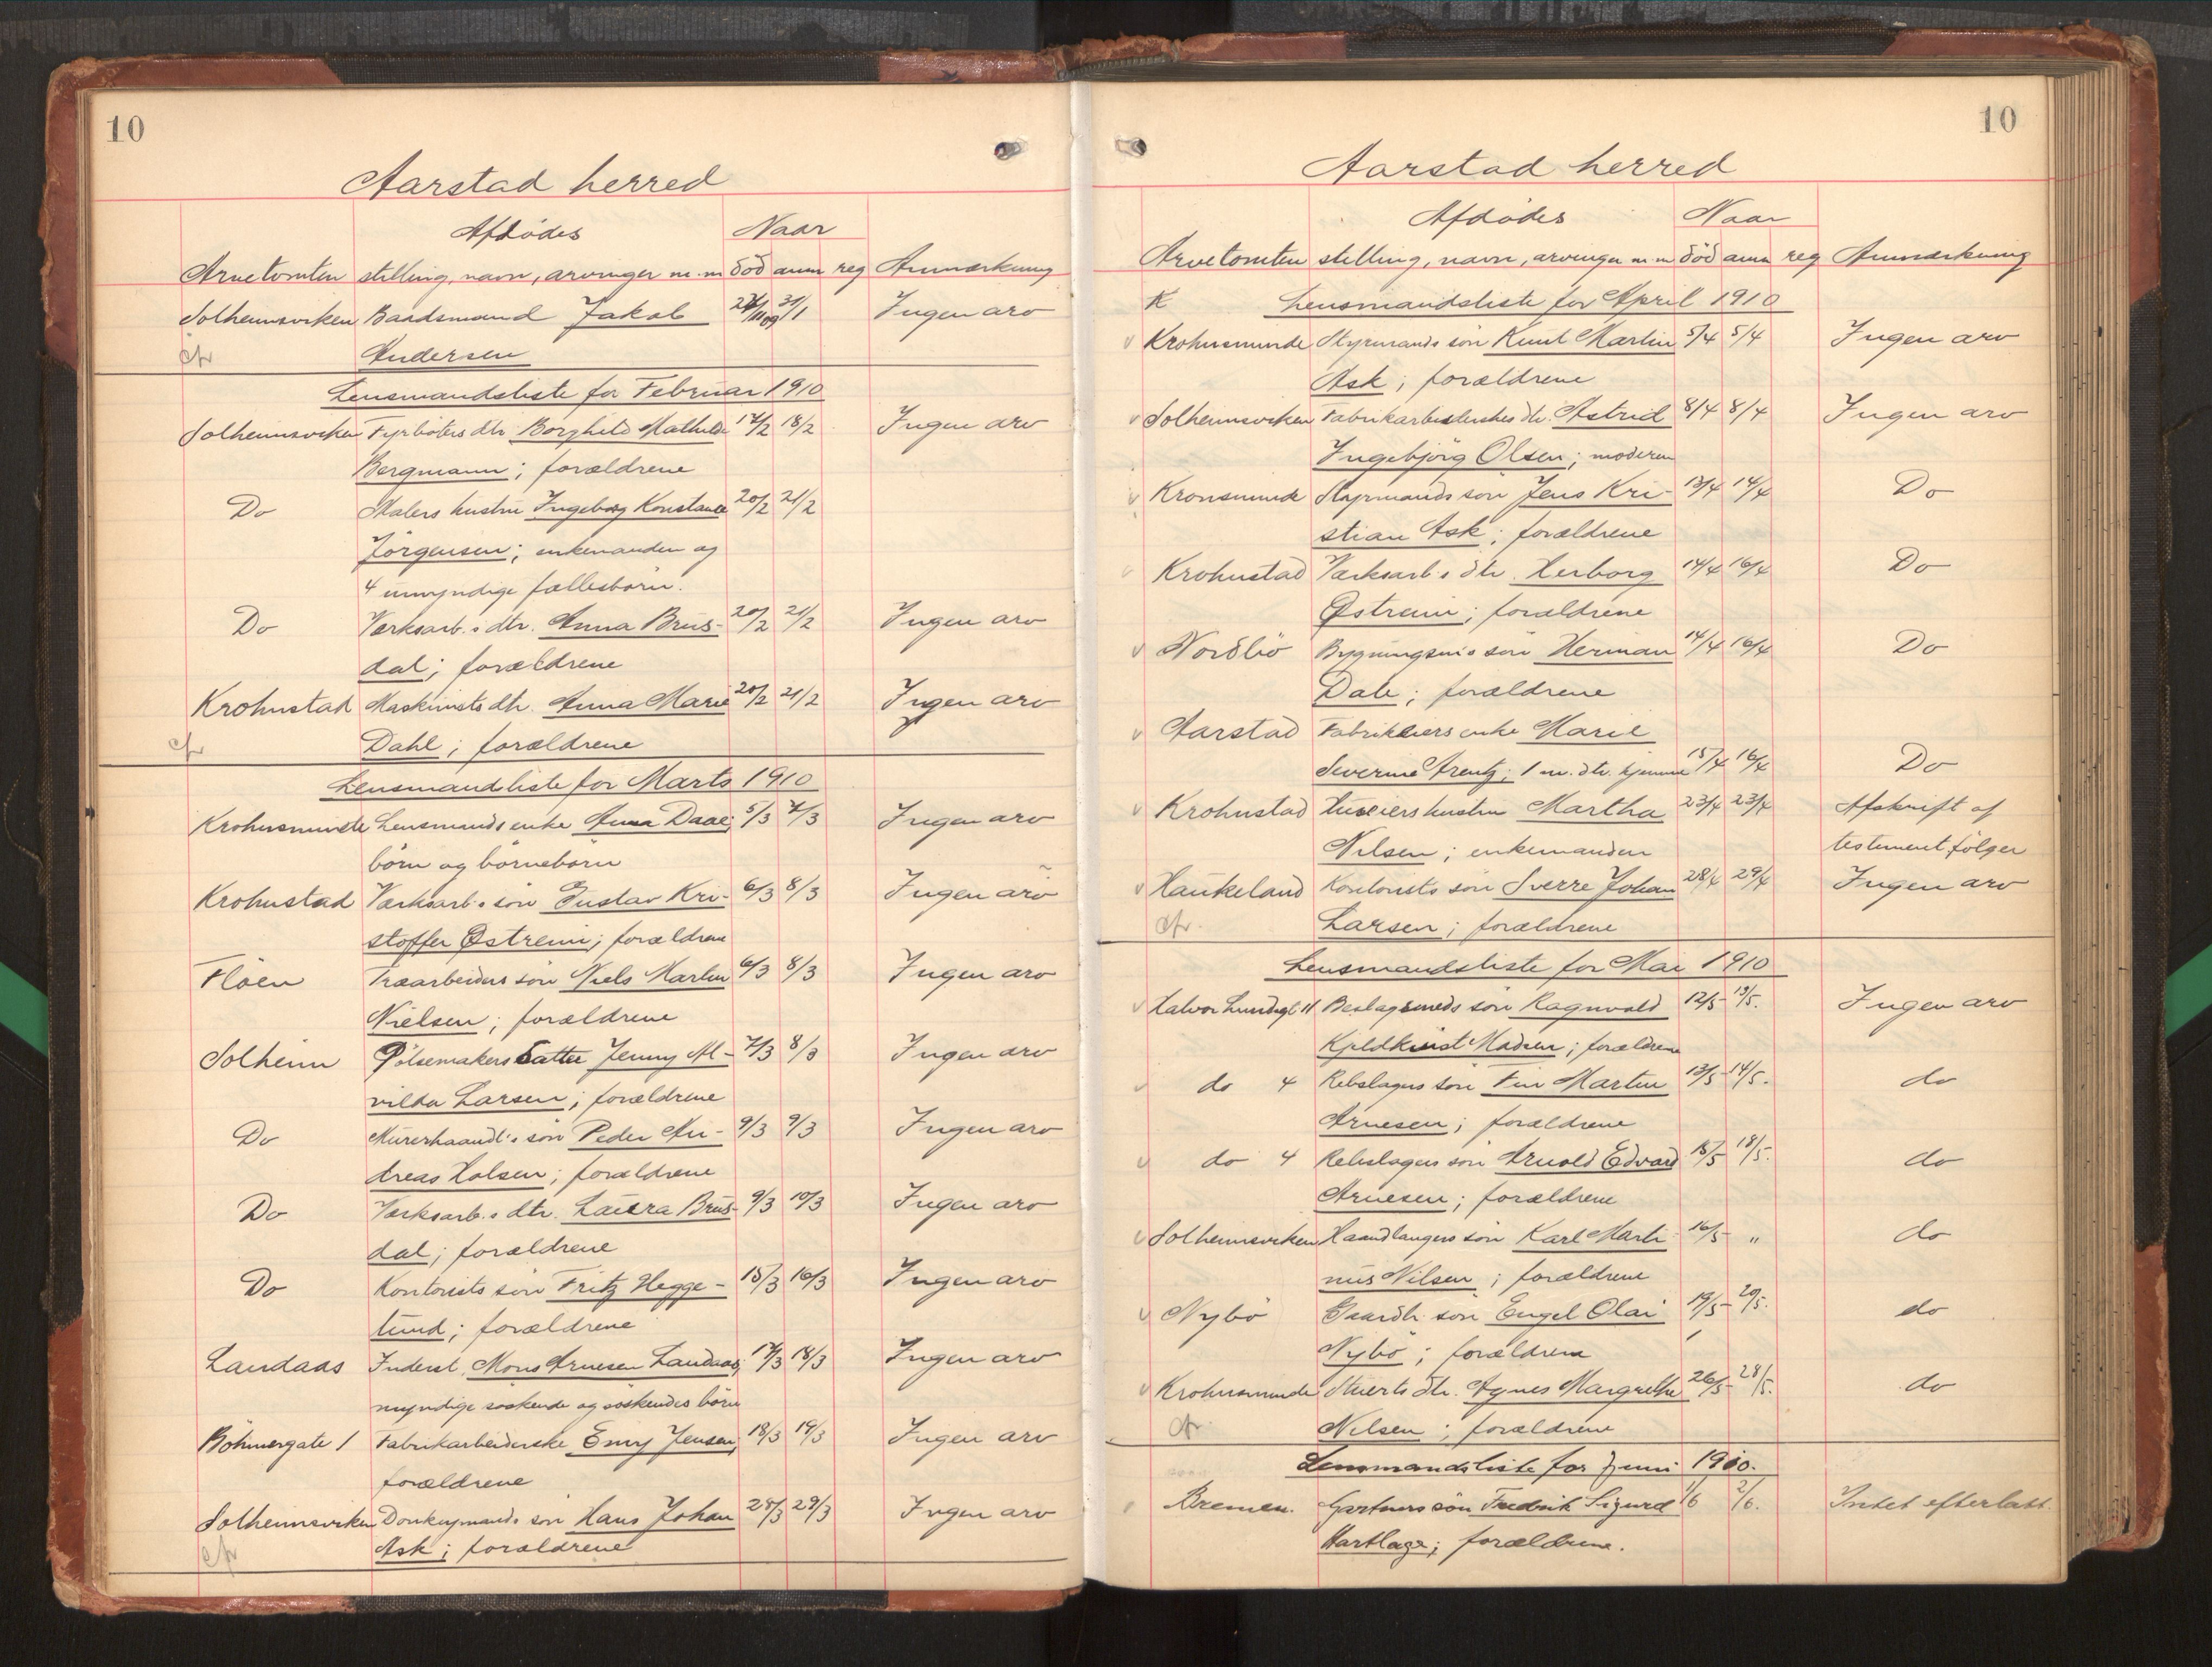 10
Aarstad herred
Afdødes Naar
Arvetomten stilling, navn, arvinger m.m død anm reg Anmærkning
Solheimsviken Baadsmand Jakob 24/11 09 31/1 Ingen arv
cfr Andersen
Lensmandsliste for Februar 1910
Solheimsviken Fyrbøters dtr. Borghild Mathilde 17/2 18/2 Ingen arv
Bergmann; forældrene
Do Malers hustru Ingeborg Konstance 20/2 21/2
Jørgensen; enkemanden og
4 umyndige fællesbørn.
Do Værksarb.s dtr. Anna Brus- 20/2 21/2 Ingen arv
dal; forældrene
Krohnstad Maskinists dtr. Anna Marie 20/2 21/2 Ingen arv
cfr Dahl; forældrene
Lensmandsliste for Marts 1910
Krohnsminde Lensmands enke Anna Daae; 5/3 7/3 Ingen arv
børn og børnebørn
Krohnstad Værksarb.s søn Gustav Kri- 6/3 8/3 Ingen arv
stoffer Østrem; forældrene
Fløen Træarbeiders søn Niels Martin 6/3 8/3 Ingen arv
Nielsen; forældrene
Solheim Pølsemakers datter Jenny Al- 7/3 8/3 Ingen arv
vilda Larsen; forældrene
Do Murerhaandl.s søn Peder An- 9/3 9/3 Ingen arv
dreas Holsen; forældrene
Do Værksarb.s dtr. Laura Brus- 9/3 10/3 Ingen arv
dal; forældrene
Do Kontorists søn Fritz Hegge- 15/3 16/3 Ingen arv
lund; forældrene
Landaas Inderst Mons Arnesen Landaas; 17/3 18/3 Ingen arv
myndige søskende og søskendes børn
Böhmergate 1 Fabrikarbeiderske Emy Jensen; 18/3 19/3 Ingen arv
forældrene
Solheimsviken Donkeymands søn Hans Johan 28/3 29/3 Ingen arv
cfr Ask; forældrene
10
Aarstad herred
Afdødes Naar
Arvetomten stilling, navn, arvinger m.m død anm reg Anmærkning
K Lensmandsliste for April 1910
Krohnsminde Styrmands søn Knut Martin 5/4 5/4 Ingen arv
Ask; forældrene
Solheimsviken Fabrikarbeiderskes dtr. Astrid 8/4 8/4 Ingen arv
Ingebjørg Olsen; moderen
Kronsminde Styrmands søn Jens Kri- 13/4 14/4 Do
stian Ask; forældrene
Krohnstad Værksarb.s dtr. Herborg 14/4 16/4 Do
Østrem; forældrene
Nordbø Bygningsm.s søn Herman 14/4 16/4 Do
Dale; forældrene
Aarstad Fabrikeiers enke Marie
Severine Arentz; 1 m. dtr. hjemme 15/4 16/4 Do
Krohnstad Huseiers hustru Martha 23/4 23/4 Afskrift af
Nilsen; enkemanden testement følger
Haukeland Kontorists søn Sverre Johan 28/4 29/4 Ingen arv
cfr. Larsen; forældrene
Lensmandsliste for Mai 1910
Halvor Lundsgt 11 Beslagsmeds søn Ragnvald 12/5 13/5. Ingen arv
Kjeldkvist Madsen; forældrene
do 4 Rebslagers søn Fin Martin 13/5 14/5. do
Arnesen; forældrene
do 4 Rebslagers søn Arnold Edvard 15/5 18/5. do
Arnesen; forældrene
Solheimsviken Haandlangers søn Karl Marti- 16/5 " do
nus Nilsen; forældrene
Nybø Gaardbr. søn Engel Olai 19/5 20/5. do
Nybø; forældrene
Krohnsminde Stuerts dtr. Agnes Margrethe 26/5 28/5. do
cfr. Nilsen; forældrene
Lensmandsliste for Juni 1910.
Bremen. Gartners søn Fredrik Sigurd 1/6 2/6. Intet efterladt
Hartlage; forældrene.